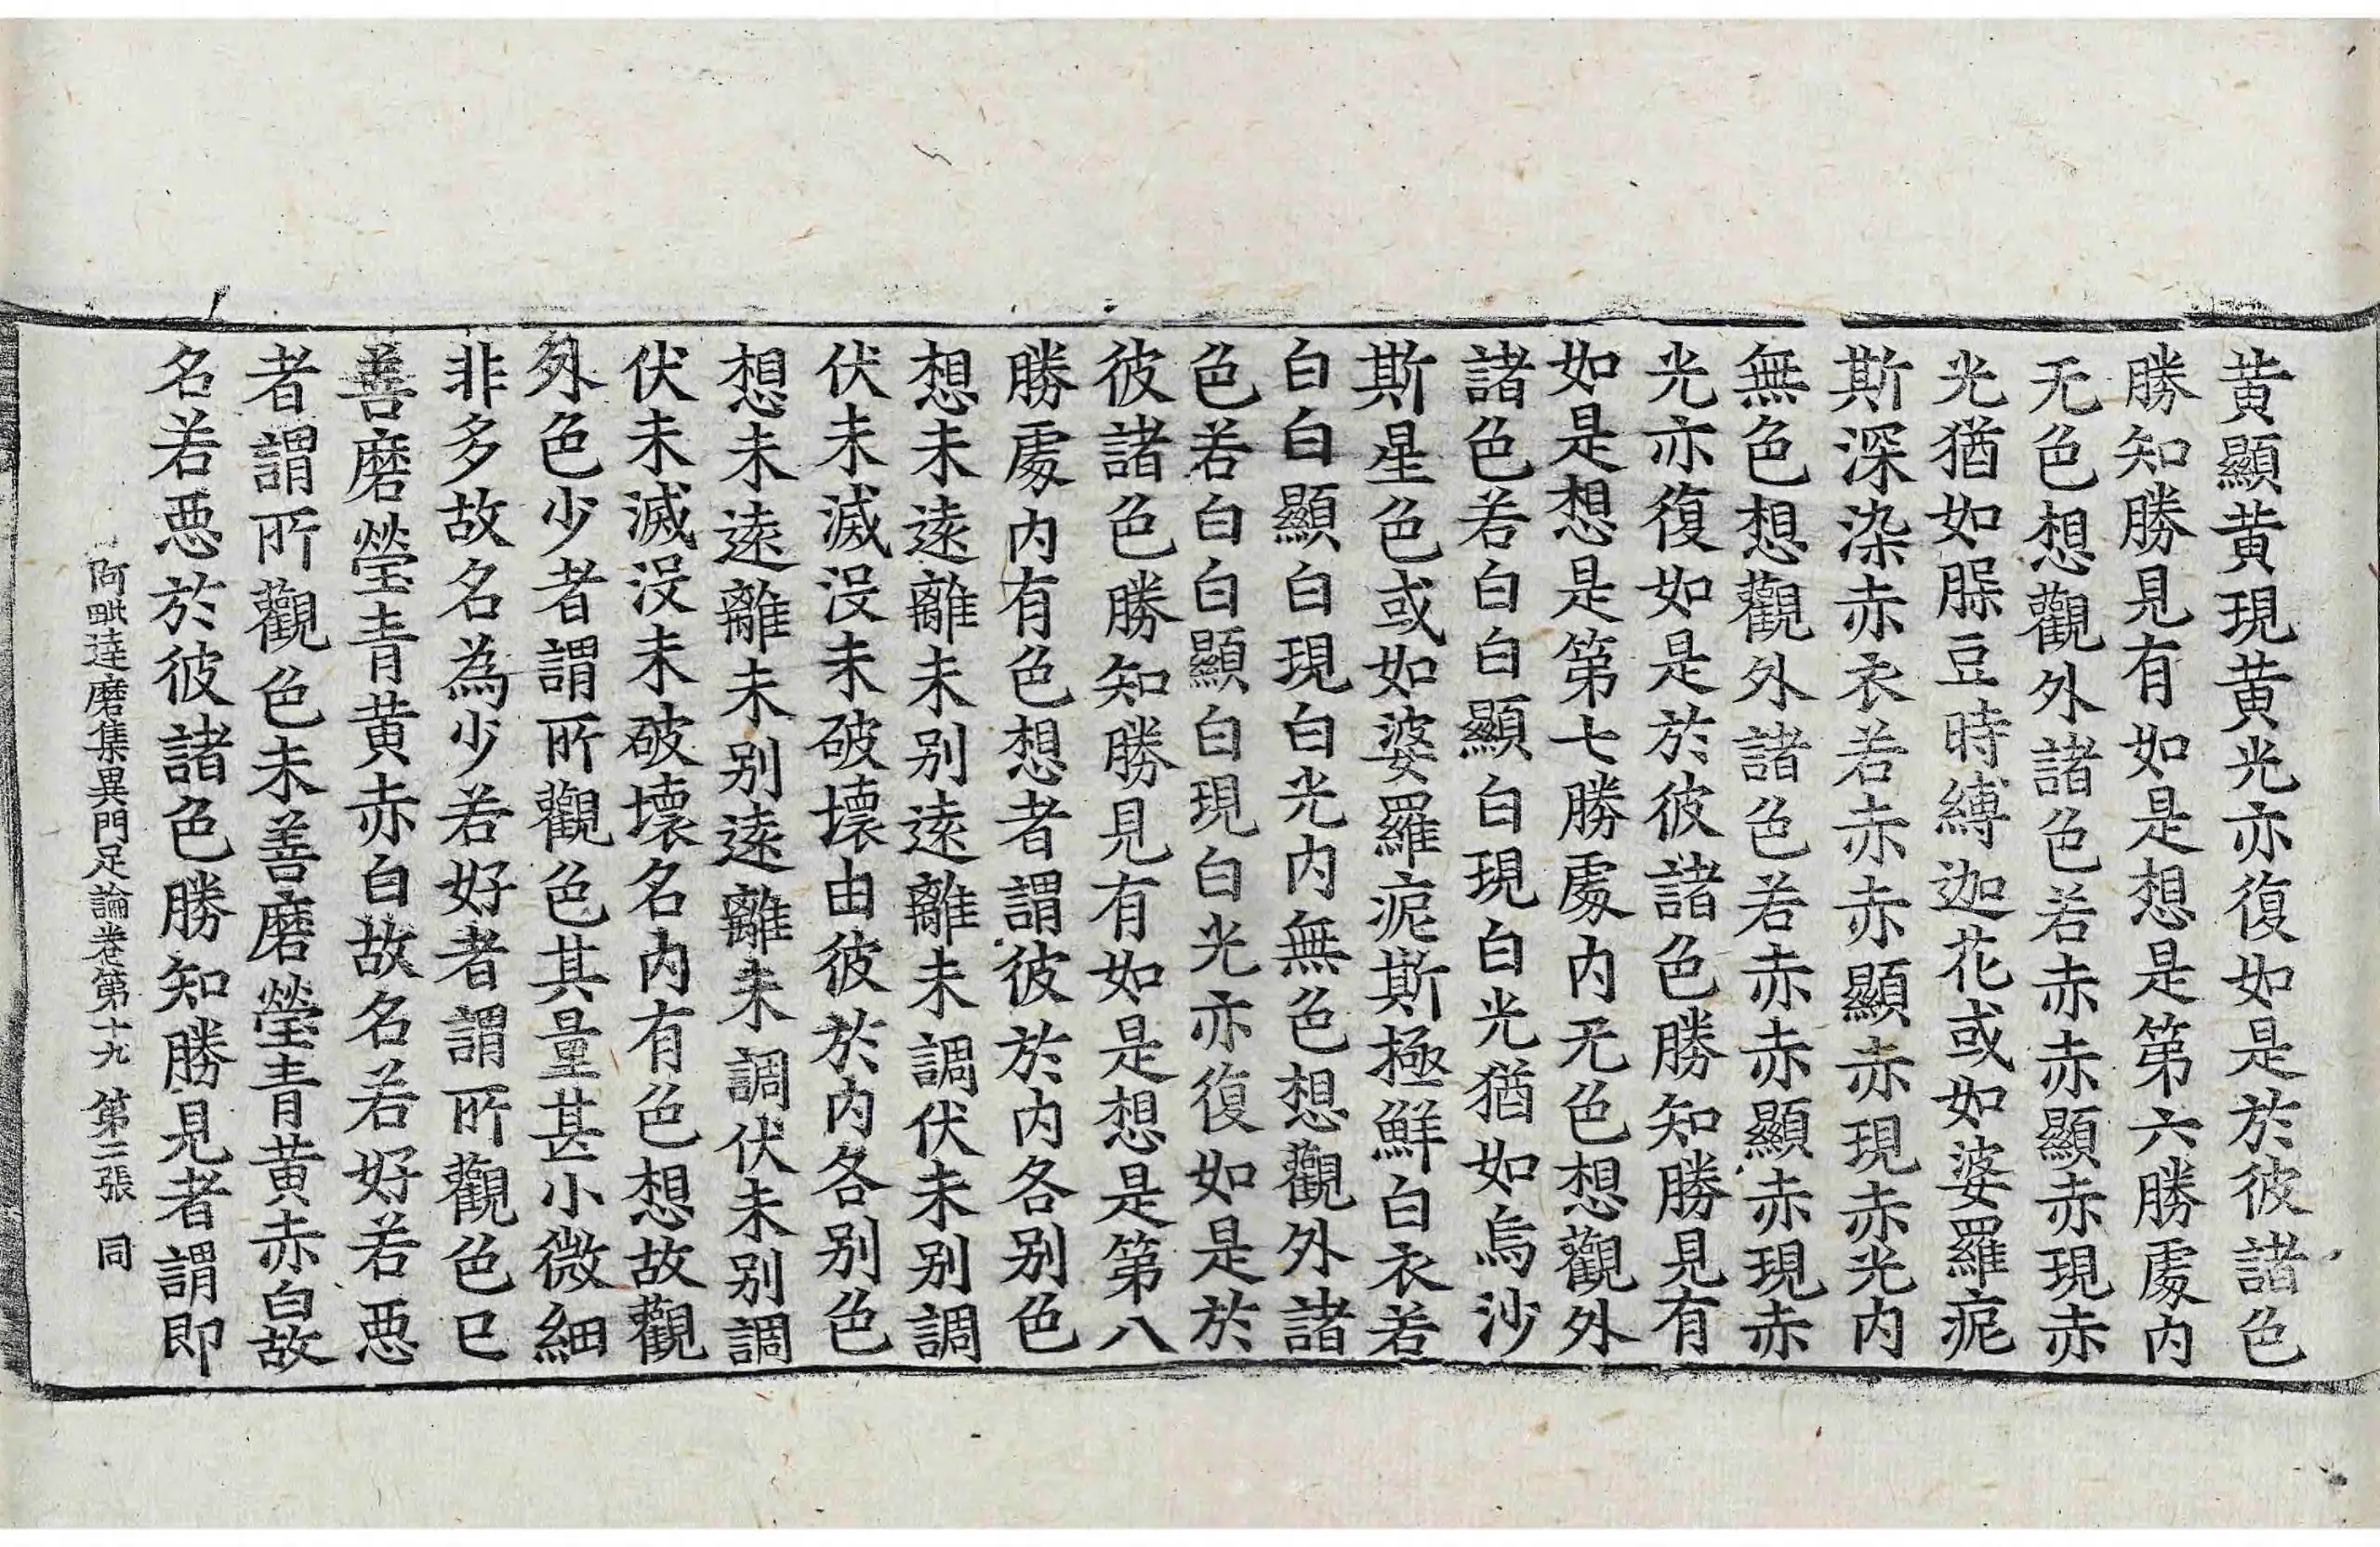 黃顯黃現黃光亦復如是於彼諸色
勝知勝見有如是想是第六勝處內
无色想觀外諸色若赤赤顯赤現赤
光猶如脲豆時縛迦花或如婆羅痆
斯深染赤衣若赤赤顯赤現赤光內
無色想觀外諸色若赤赤顯赤現赤
光亦復如是於彼諸色勝知勝見有
如是想是第七勝處內无色想觀外
諸色若白白顯白現白光猶如烏沙
斯星色或如婆羅痆斯極鮮白衣若
白白顯白現白光內無色想觀外諸
色若白白顯白現白光亦復如是於
彼諸色勝知勝見有如是想是第八
勝處內有色想者謂彼於內各別色
想未遠離未別遠離未調伏未別調
伏未滅沒未破壞由彼於內各別色
想未遠離未別遠離未調伏未別調
伏未滅沒未破壞名內有色想故觀
外色少者謂所觀色其量甚小微細
非多故名為少若好者謂所觀色已
善磨瑩青黃赤白故名若好若惡
者謂所觀色未善磨瑩青黃赤白故
名若惡於彼諸色勝知勝見者謂即
阿毗達磨集異門足論卷第十九 第三張 同